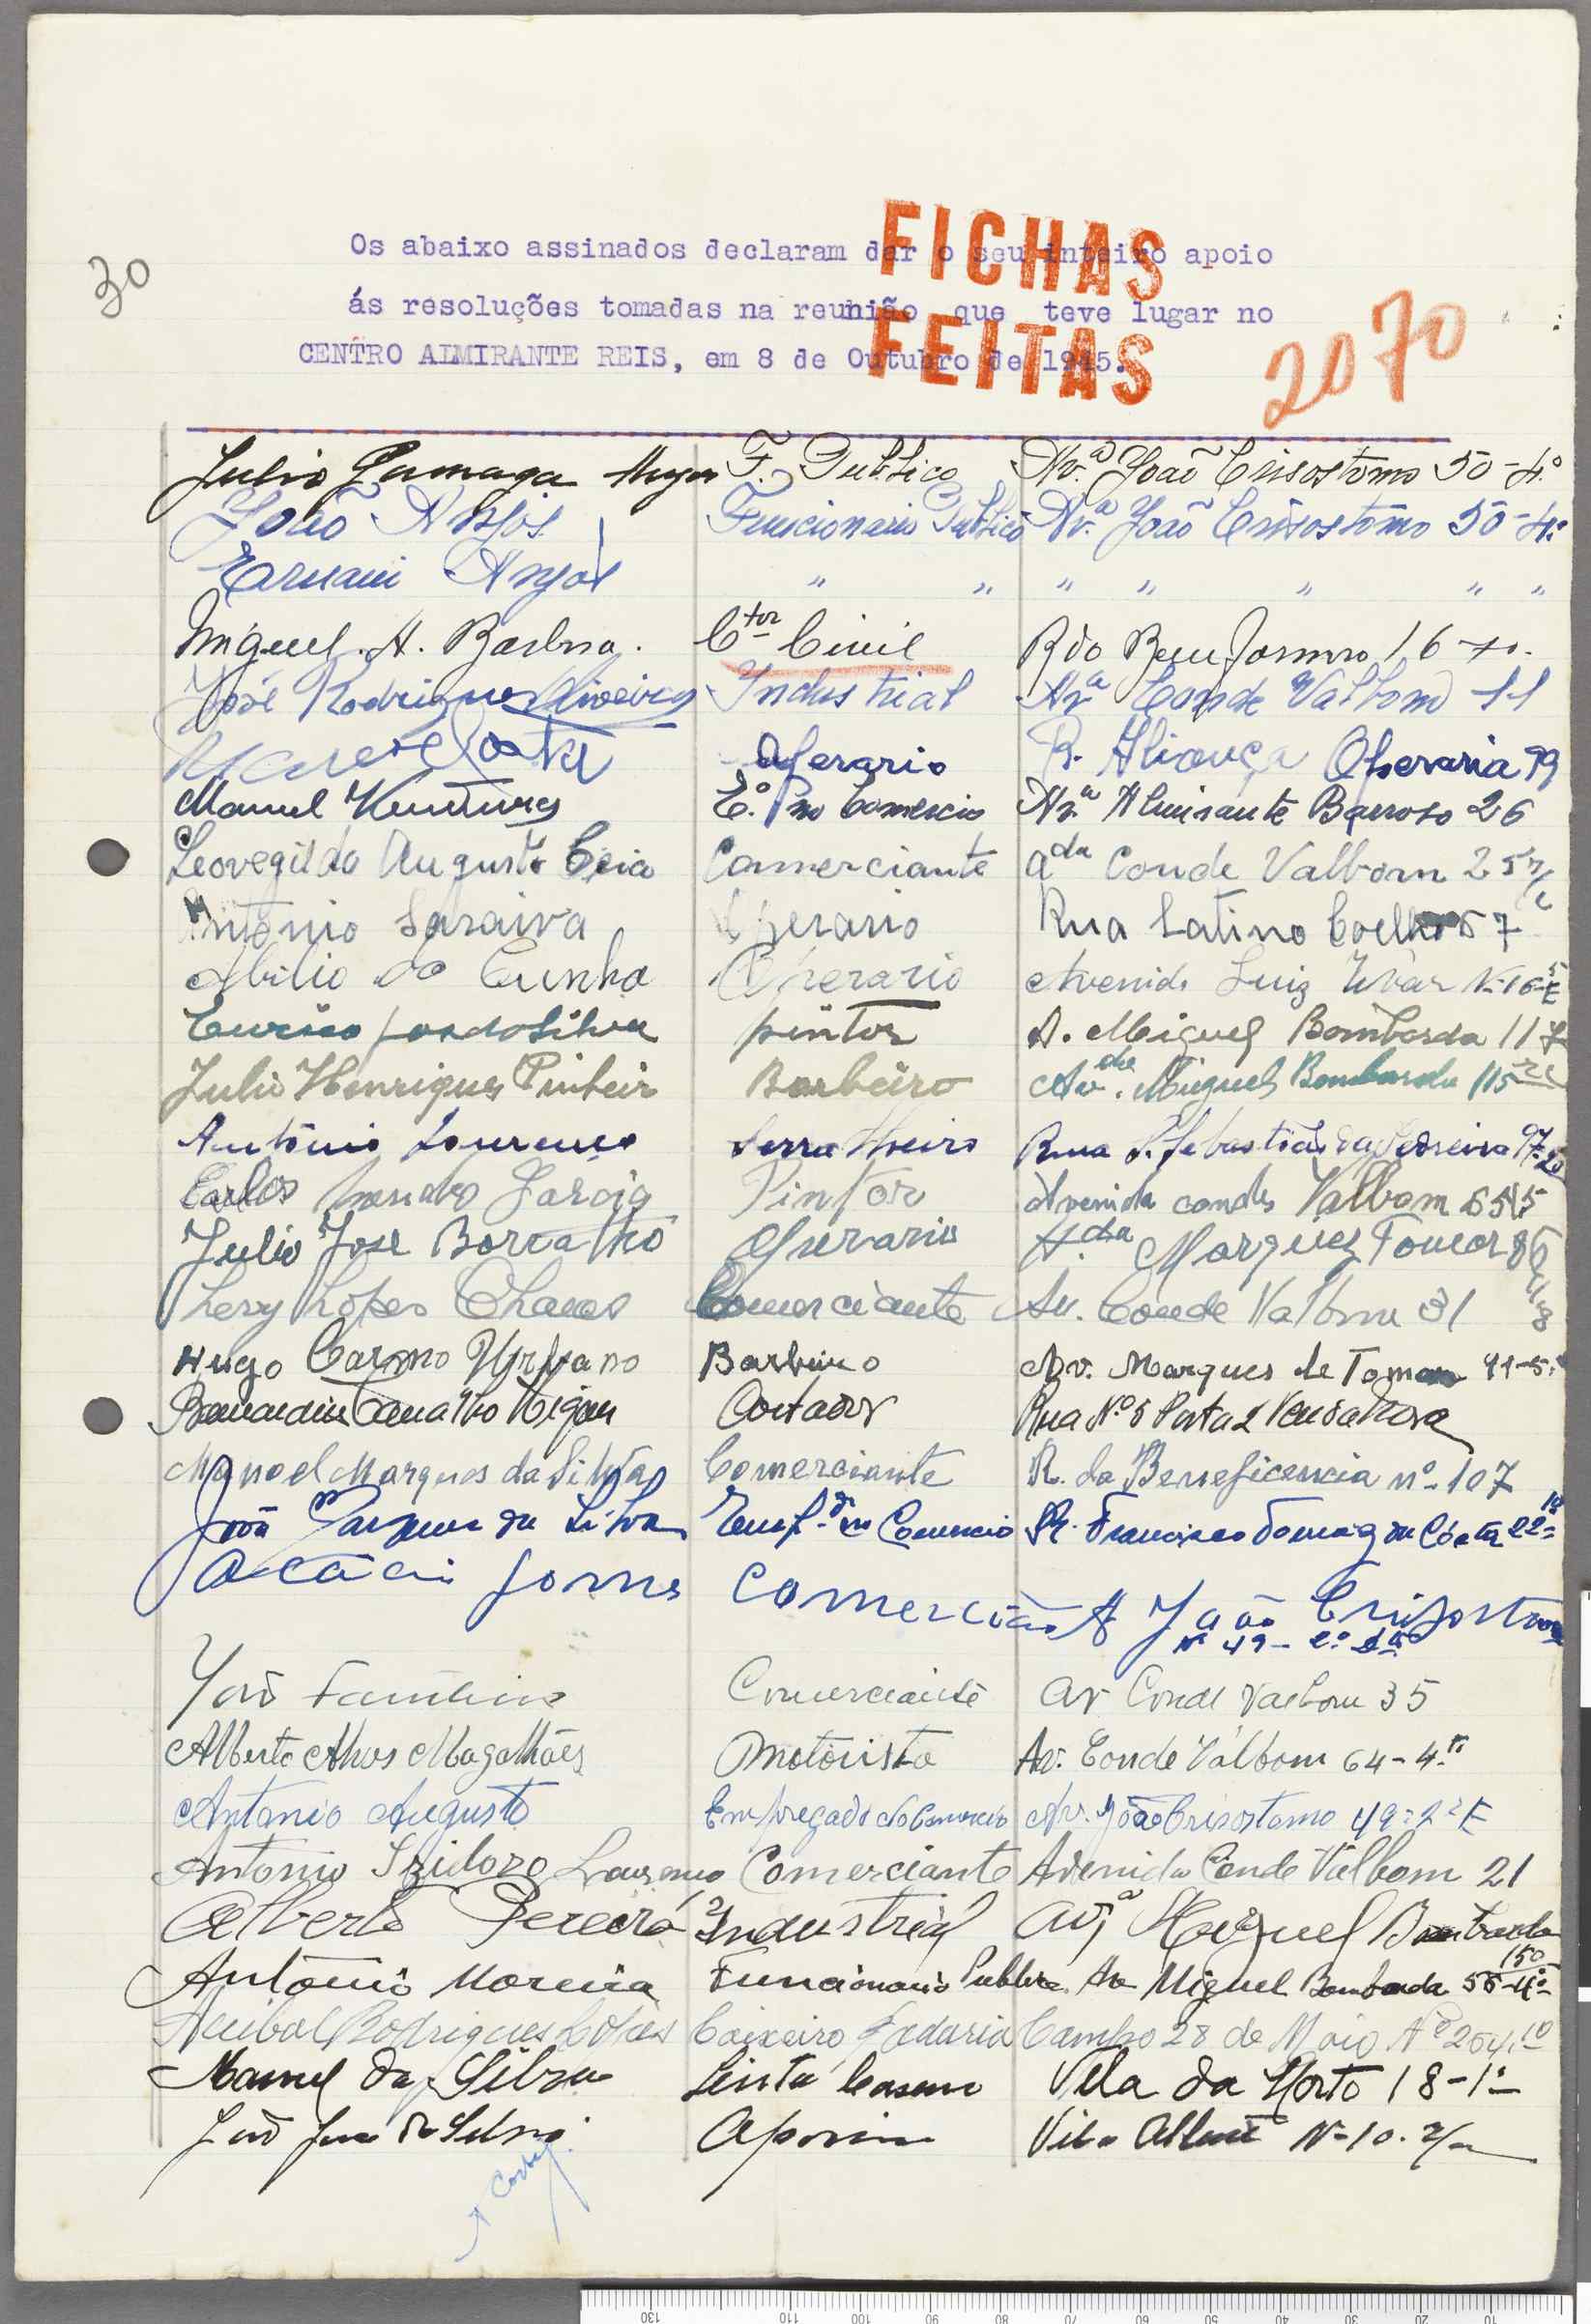 30
FICHAS
FEITAS
2070
Os abaixo assinados declaram dar o seu inteiro apoio
ás resoluções tomadas na reunião que teve lugar no
CENTRO ALMIRANTE REIS, em 8 de Outubro de 1945.
Julio F. Publico Avª João Crisostomo 50-4º
João Anjos Funcionario Publico Avª João Crisostomo 50-4º
Ernani Anjos " " " " " " "
Miguel A. Barbosa Ctor Civil Rdo Bemformoso 16
José Rodrigues Oliveira Industrial Avª Conde Valbom 11
Operario R. Aliança Operaria 79
Manuel Ventura E.º no Comercio Avª Almirante Barroso 26
Leovegildo Augusto Ceia Comerciante Ada Conde Valbom 25 r/c
Antonio Saraiva Operario Rua Latino Coelho 57
Abilio da Cunha Operario Avenida Luiz
pintor A. Miguel Bombarda 117
Julio Henriques Pinheiro Barbeiro Avda. Miguel Bombarda 115
António Lourenço Serralheiro Rua S. Sebastião da Pedreira 97
Carlos Mendes Garcia Pintor Avenida conde Valbom 65
Julio José Borralho Operario Ada Marquez Tomar
Lopes Chaves Comerciante Av. Conde Valbom 31
Hugo Carmo Urbano Barbeiro Av. Marques de Tomar 41-5.º
Bernardino Cortador Rua Nº 5 Porta 2 Venda Nova
Manoel Marques da Silva Comerciante R. da Beneficencia nº 107
João Marques da Silva Emp. do Comercio R. Francisco Tomaz da Costa 22
Acacio Gomes Comercio A João Crisostomo
Nº 49-2º
João Comerciante Av Conde Valbom 35
Alberto Alves Magalhães Motorista Av. Conde Válbom 64-4.º
Antonio Augusto Empregado No Comercio Av. João Crisostomo 49-2º E
Antonio Izidoro Lourenço Comerciante Avenida Conde Valbom 21
Alberto Pereira Industrial Avª Miguel Bombarda
150
António Moreira Funcionario Publico Av Miguel Bombarda 56-4º
Anibal Rodrigues Caixeiro Padaria Campo 28 de Maio Nº 204
Manuel da Silva Vila da Horto 18-1º
João José da Silva Vila Nº 10